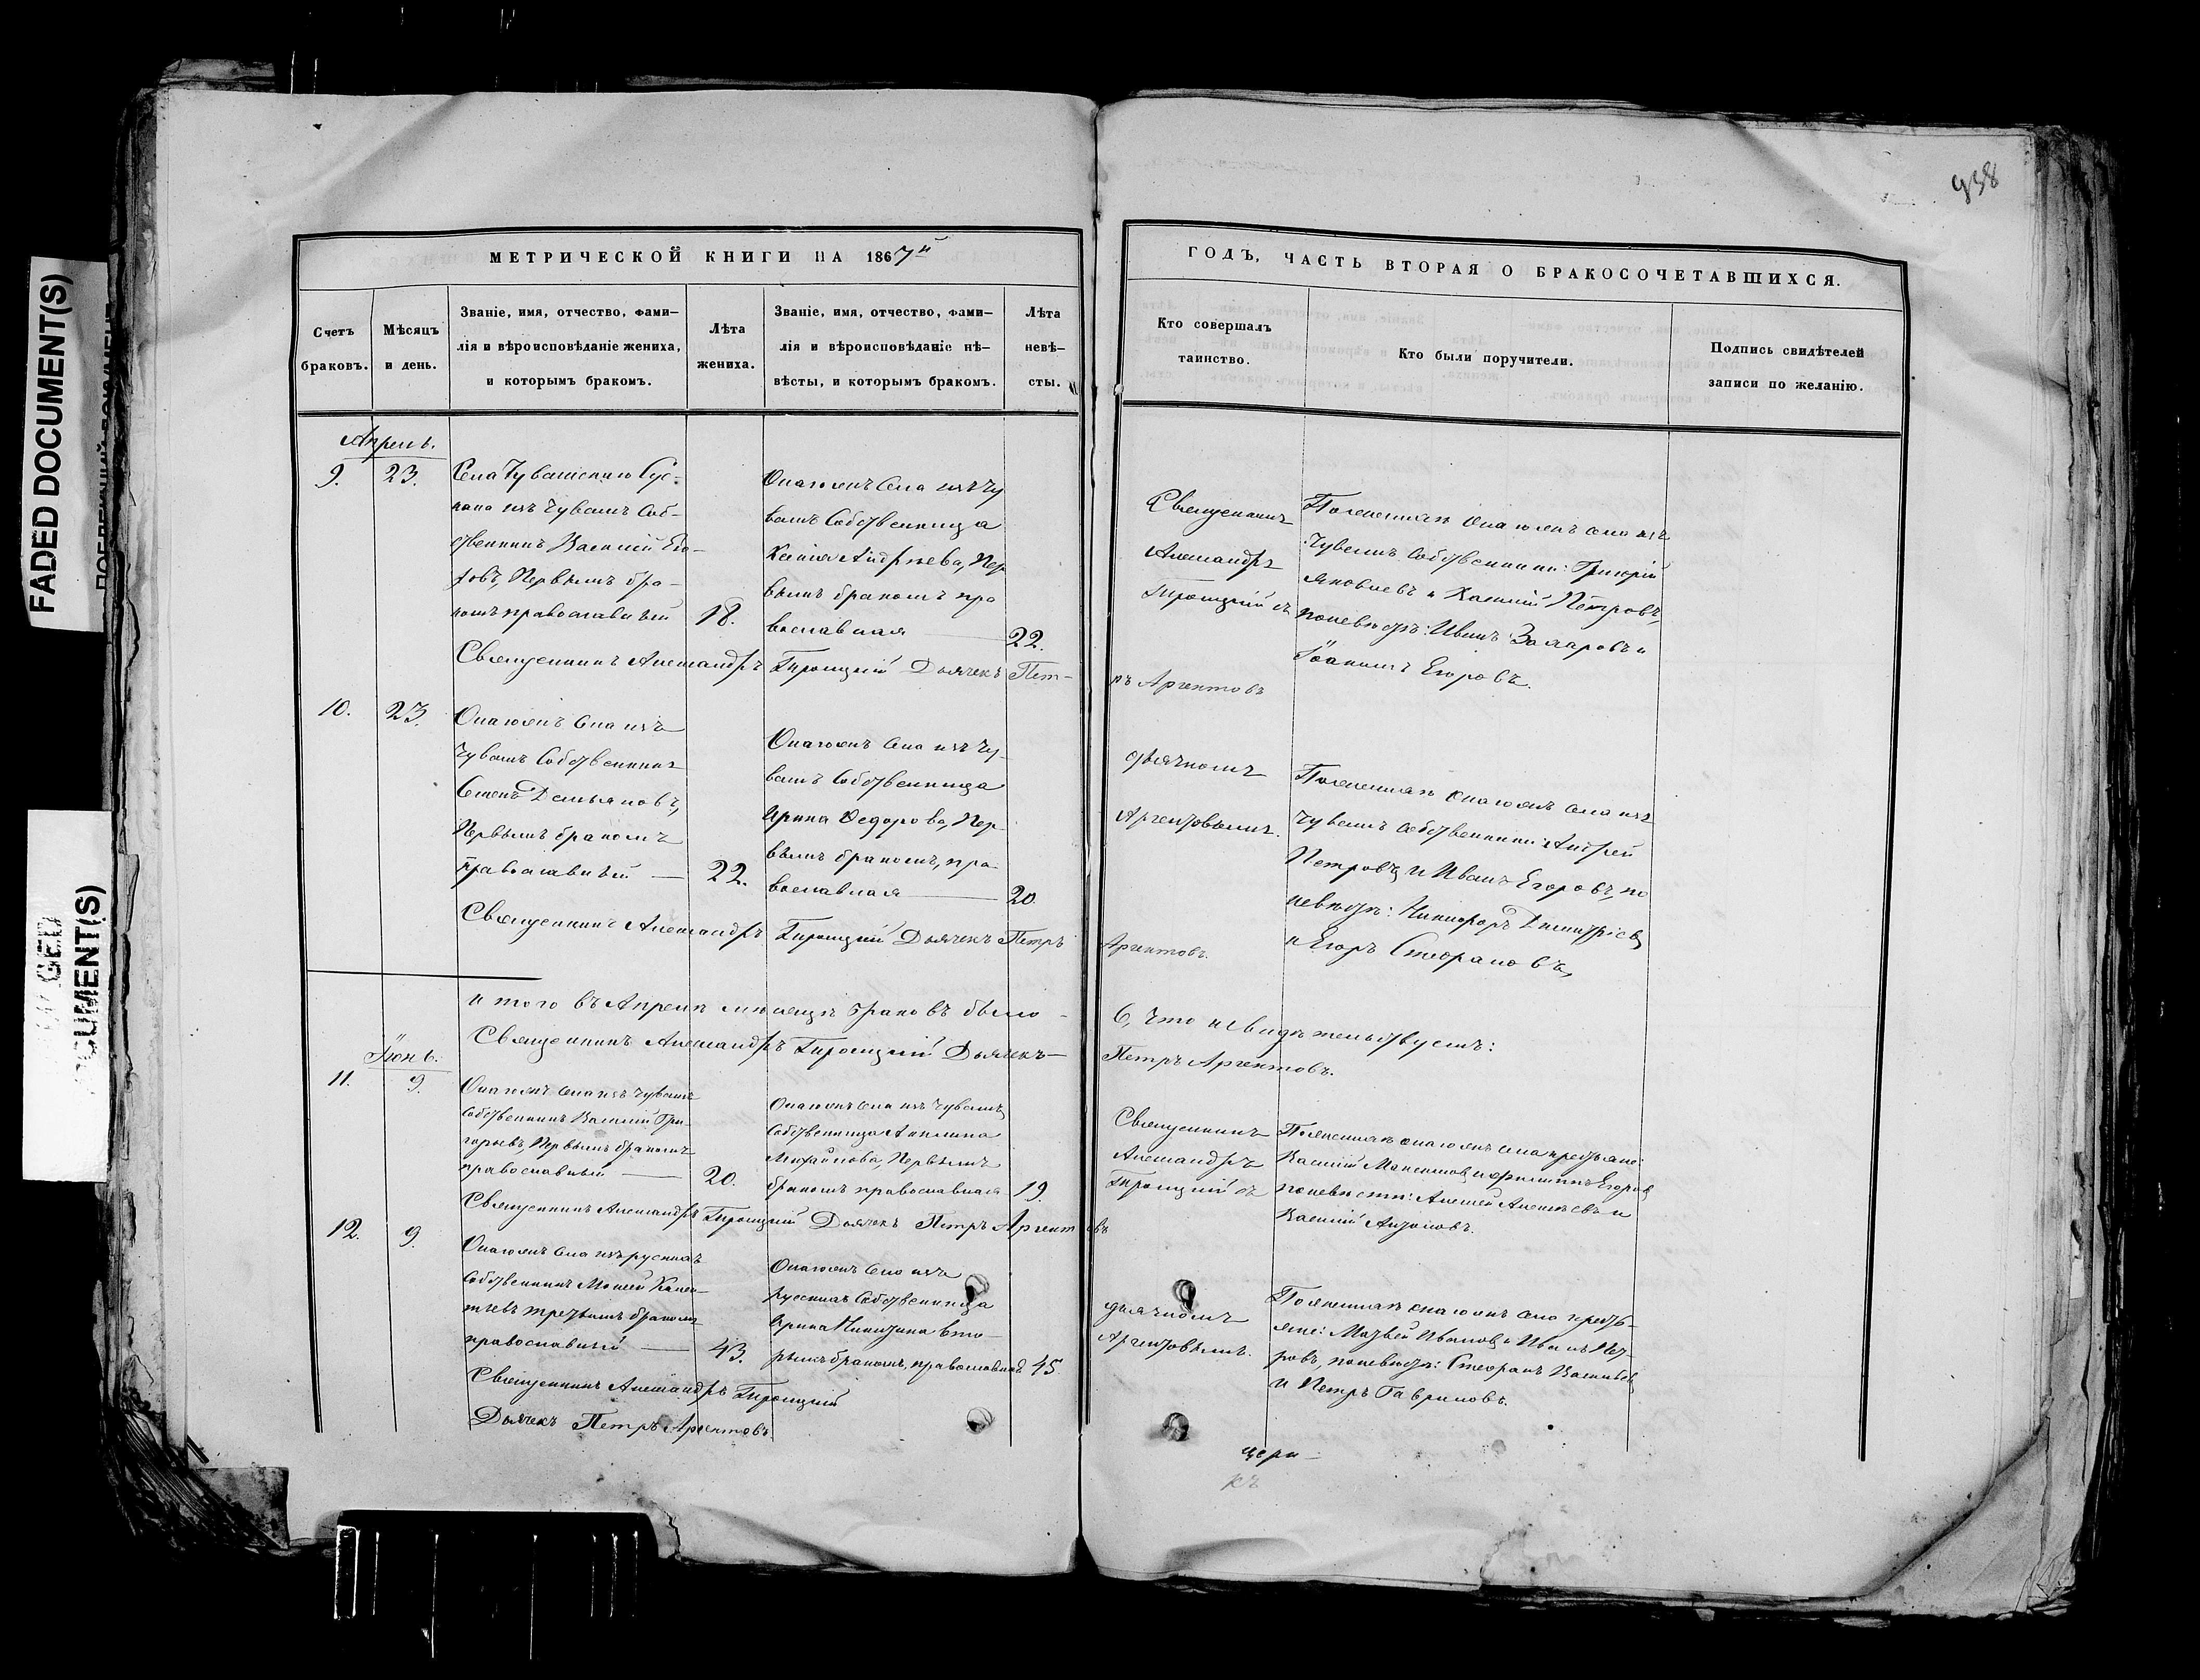 938
FADED DOCUMENT(S)
DOCUMENT(S)
МЕТРИЧЕСКОЙ КНИГИ НА 1867й
ГОДЪ, ЧАСТЬ ВТОРАЯ О БРАКОСОЧЕТАВШИХСЯ.
Счетъ
браковъ.
Мѣсяцъ
и день.
Званіе, имя, отчество, фами—
лія и вѣроисповѣданіе жениха,
и которымъ бракомъ.
Лѣта
жениха.
Званіе, имя, отчество, фами—
лія и вѣроисповѣданіе нѣ—
вѣсты, и которымъ бракомъ.
Лѣта
невѣ—
сты.
Кто совершалъ
таинство.
Кто были поручители.
Подпись свидѣтелей
записи по желанію.
Апрель.
9.
23.
Села Чувашскаго Сус-
кана изъ Чувашъ Соб-
ственникъ Василій Его-
ровъ, Первымъ бра-
комъ православный
18.
Онагожъ Села изъ Чу
вашъ Собственница
Ксенія Андреева, Пер
вымъ бракомъ пра
вославная
22.
Священникъ
Александръ
Троицкій съ
Поженихѣ онагожъ села изъ
Чувашъ собственники: Григорій
Яковлевъ и Василій Петровъ,
поневѣстѣ: Иванъ Захаровъ и
Іоакимъ Егоровъ.
Священникъ Александръ Троицкій Дьячекъ Пет-
ръ Аргентовъ
10.
23.
Онагожъ Села изъ
Чувашъ Собственникъ
Семенъ Демьяновъ,
Первымъ бракомъ
православный
22.
Онагожъ Села изъ Чу-
вашъ Собственница
Ирина Федорова, Пер-
вымъ бракомъ, пра
вославная
20.
дьячкомъ
Аргентовымъ.
Поженихѣ онагожъ села изъ
Чувашъ собственники: Андрей
Петровъ и Иванъ Егоровъ, по
невѣстѣ: Никифоръ Димитріевъ
и Егоръ Стефановъ,
Священникъ Александръ Троицкій Дьячекъ Петръ
Аргентовъ.
и того въ Апрелѣ мѣсяцѣ браковъ было -
6, что и свидѣтельствуемъ:
Священникъ Александръ Троицкій Дьячекъ—
Петръ Аргентовъ.
Іюнь.
11.
9.
Онагожъ Села изъ Чувашъ
Собственникъ Василій Гри-
горьевъ, Первымъ бракомъ
православный
20.
Онагожъ Села изъ Чувашъ
Собственница Акилина
Михайлова, Первымъ
бракомъ православная
19.
Священникъ
Александръ
Троицкій съ
Поженихѣ онагожъ села крестьяне:
Василій Максимовъ и Филиппъ Егоровъ
поневѣстѣ: Алексей Алексѣевъ и
Василій Антоновъ.
Священникъ Александръ Троицкій Дьячекъ Петръ Аргентовъ
12.
9.
Онагожъ Села изъ русскихъ
Собственникъ Моисей
третьимъ бракомъ
православный
43.
Онагожъ Села изъ
русскихъ Собственница
Ирина Никитина вто-
рымъ бракомъ, православная
45.
дьячкомъ
Аргентовымъ.
Поженихѣ онагожъ села кресть-
яне: Матвей Ивановъ и Иванъ Пет-
ровъ, поневѣстѣ: Стефанъ Васильевъ
и Петръ Гавриловъ.
Священникъ Александръ Троицкій
Дьячекъ Петръ Аргентовъ
церк-
къ